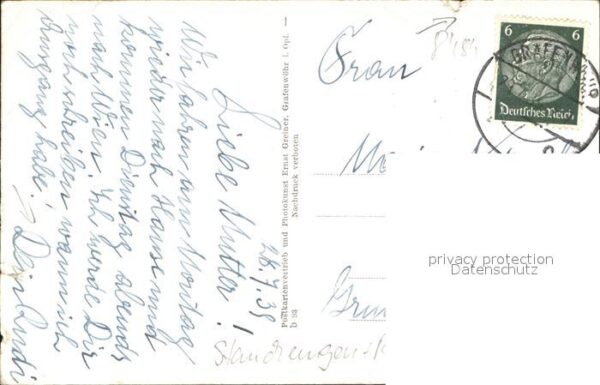 26.7.39
Liebe Mutter!
Wir fahren am Montag
wieder nach Hause und
kommen Dienstag abends
nach Wien. Ich werde Dir
noch schreiben wann ich
Ausgang habe!
Dein Rudi
Postkartenvertrieb und Photokunst Ernst Greiner, Grafenwöhr i. Opf. —
Nachdruck verboten
D 93
Frau
6 6
Deutsches Reich
GRAFENWÖHR
privacy protection
Datenschutz